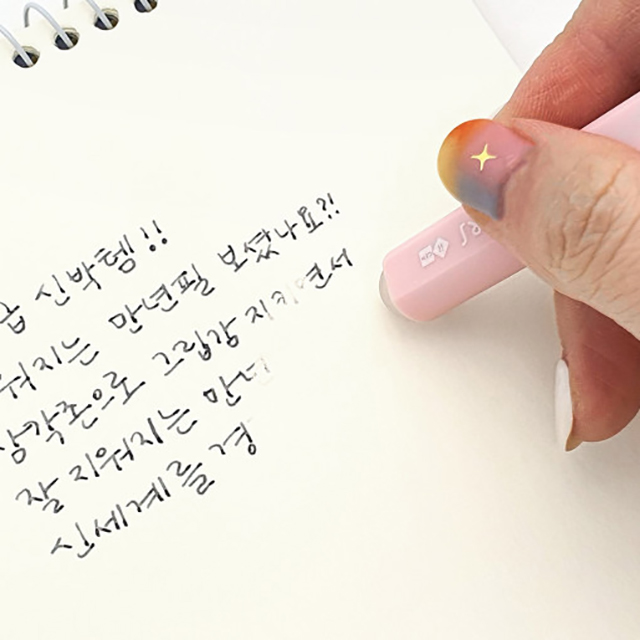 급 신박템!!
워지는 만년필 보셨나요?!
삼각존으로 그립감 지키면서
잘 지워지는 만년
신세계를 경